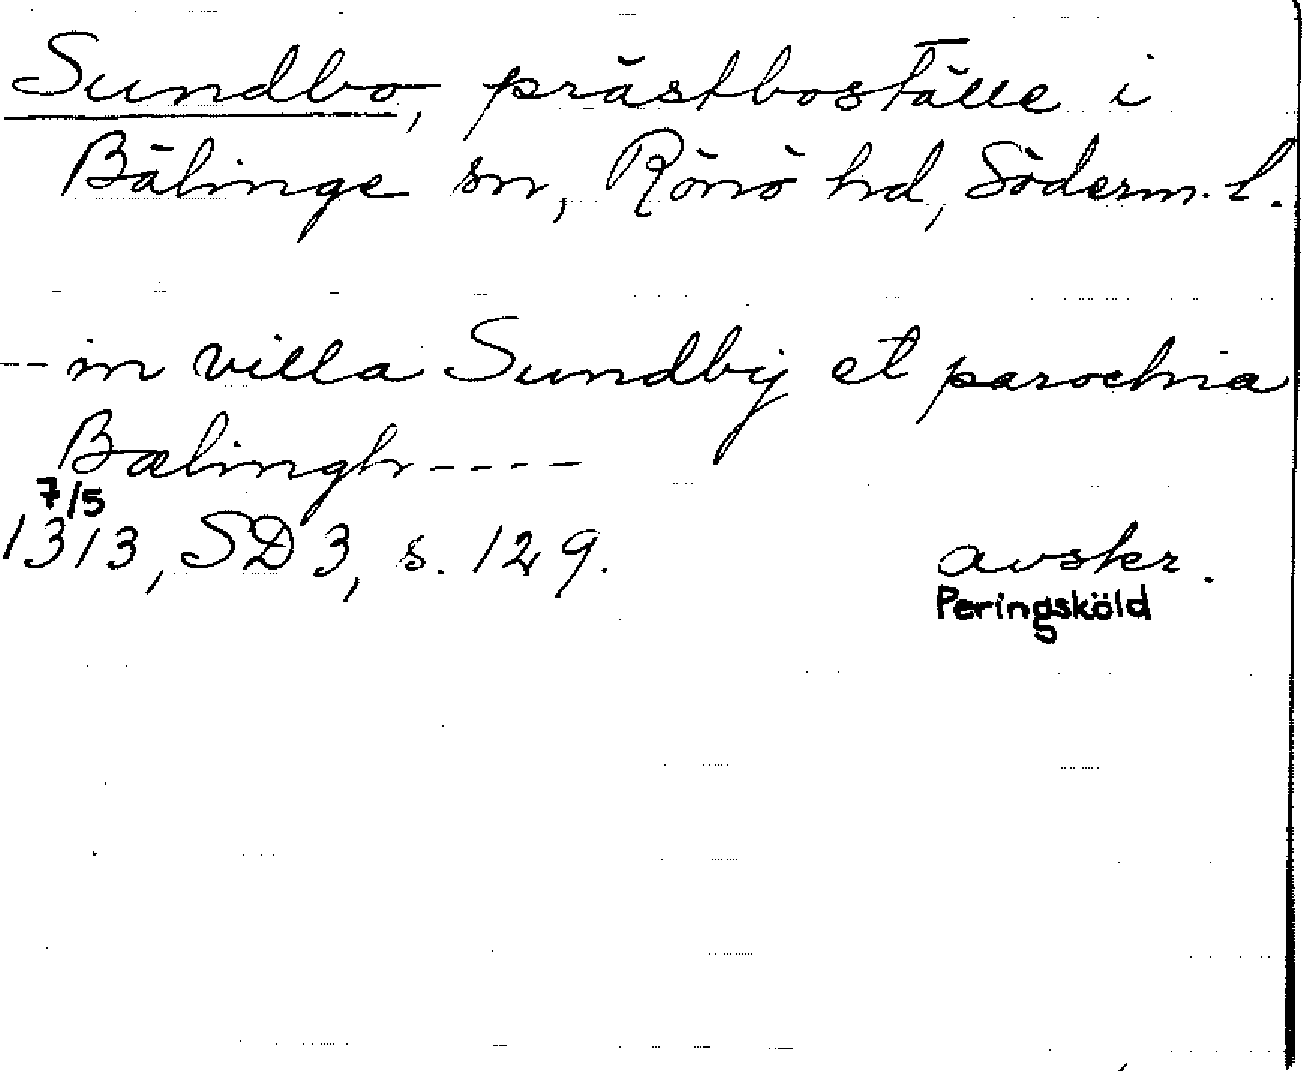 Sundbo, prästboställe i
Bälinge sn, Rönö hd, Söderm. l.
-- in villa Sundby et parochia
Bælingh ----
7/5
1313, SD 3, s. 129.
avskr.
Peringsköld